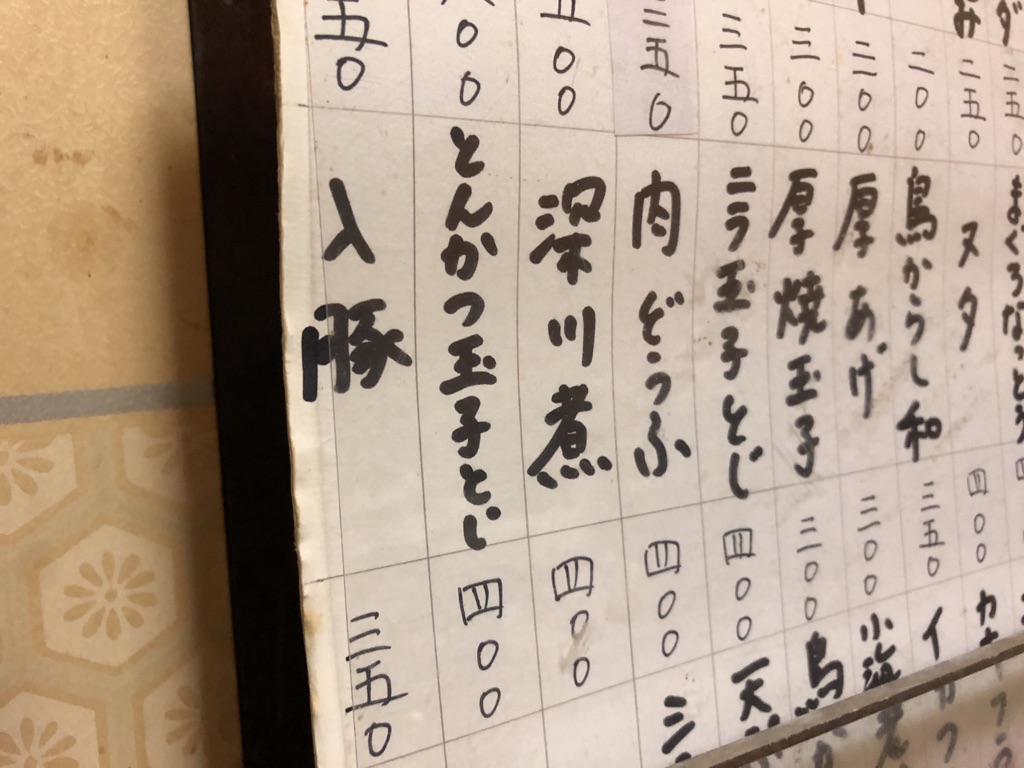 ダ 三五〇
み 二五〇
二〇〇
二〇〇
三〇〇
三五〇
三五〇
五〇〇
〇〇
五〇
まぐろなっとう 四
ヌタ 四〇〇
鳥からし和 三五〇
厚あげ 三〇〇
厚焼玉子 三〇〇
ニラ玉子とじ 四〇〇
肉どうふ 四〇〇
深川煮 四〇〇
とんかつ玉子とじ 四〇〇
入豚 三五〇
イカフ
小海老
鳥か
天
シ